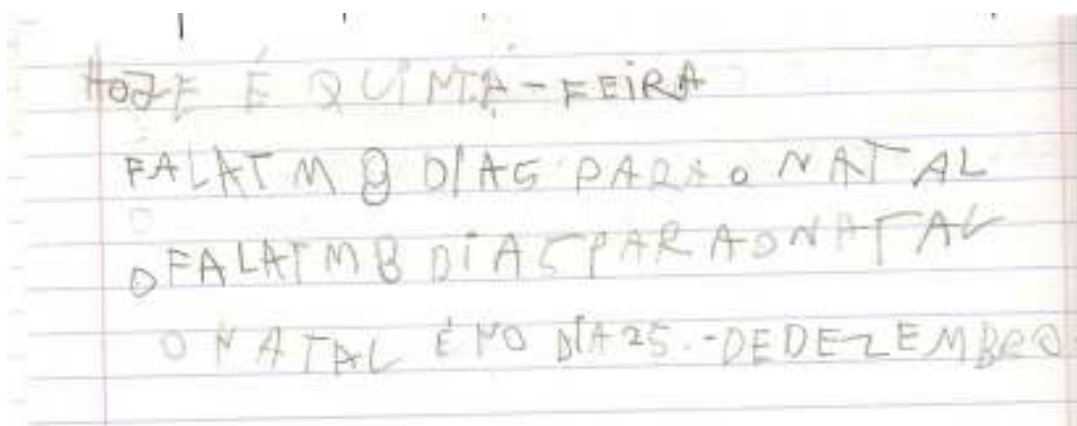 HOJE É QUINTA-FEIRA
FALATM 8 DIAS PARA O NATAL
O FALATM 8 DIAS PARA O NATAL
O NATAL É NO DIA 25.-DE DEZEMBRO.